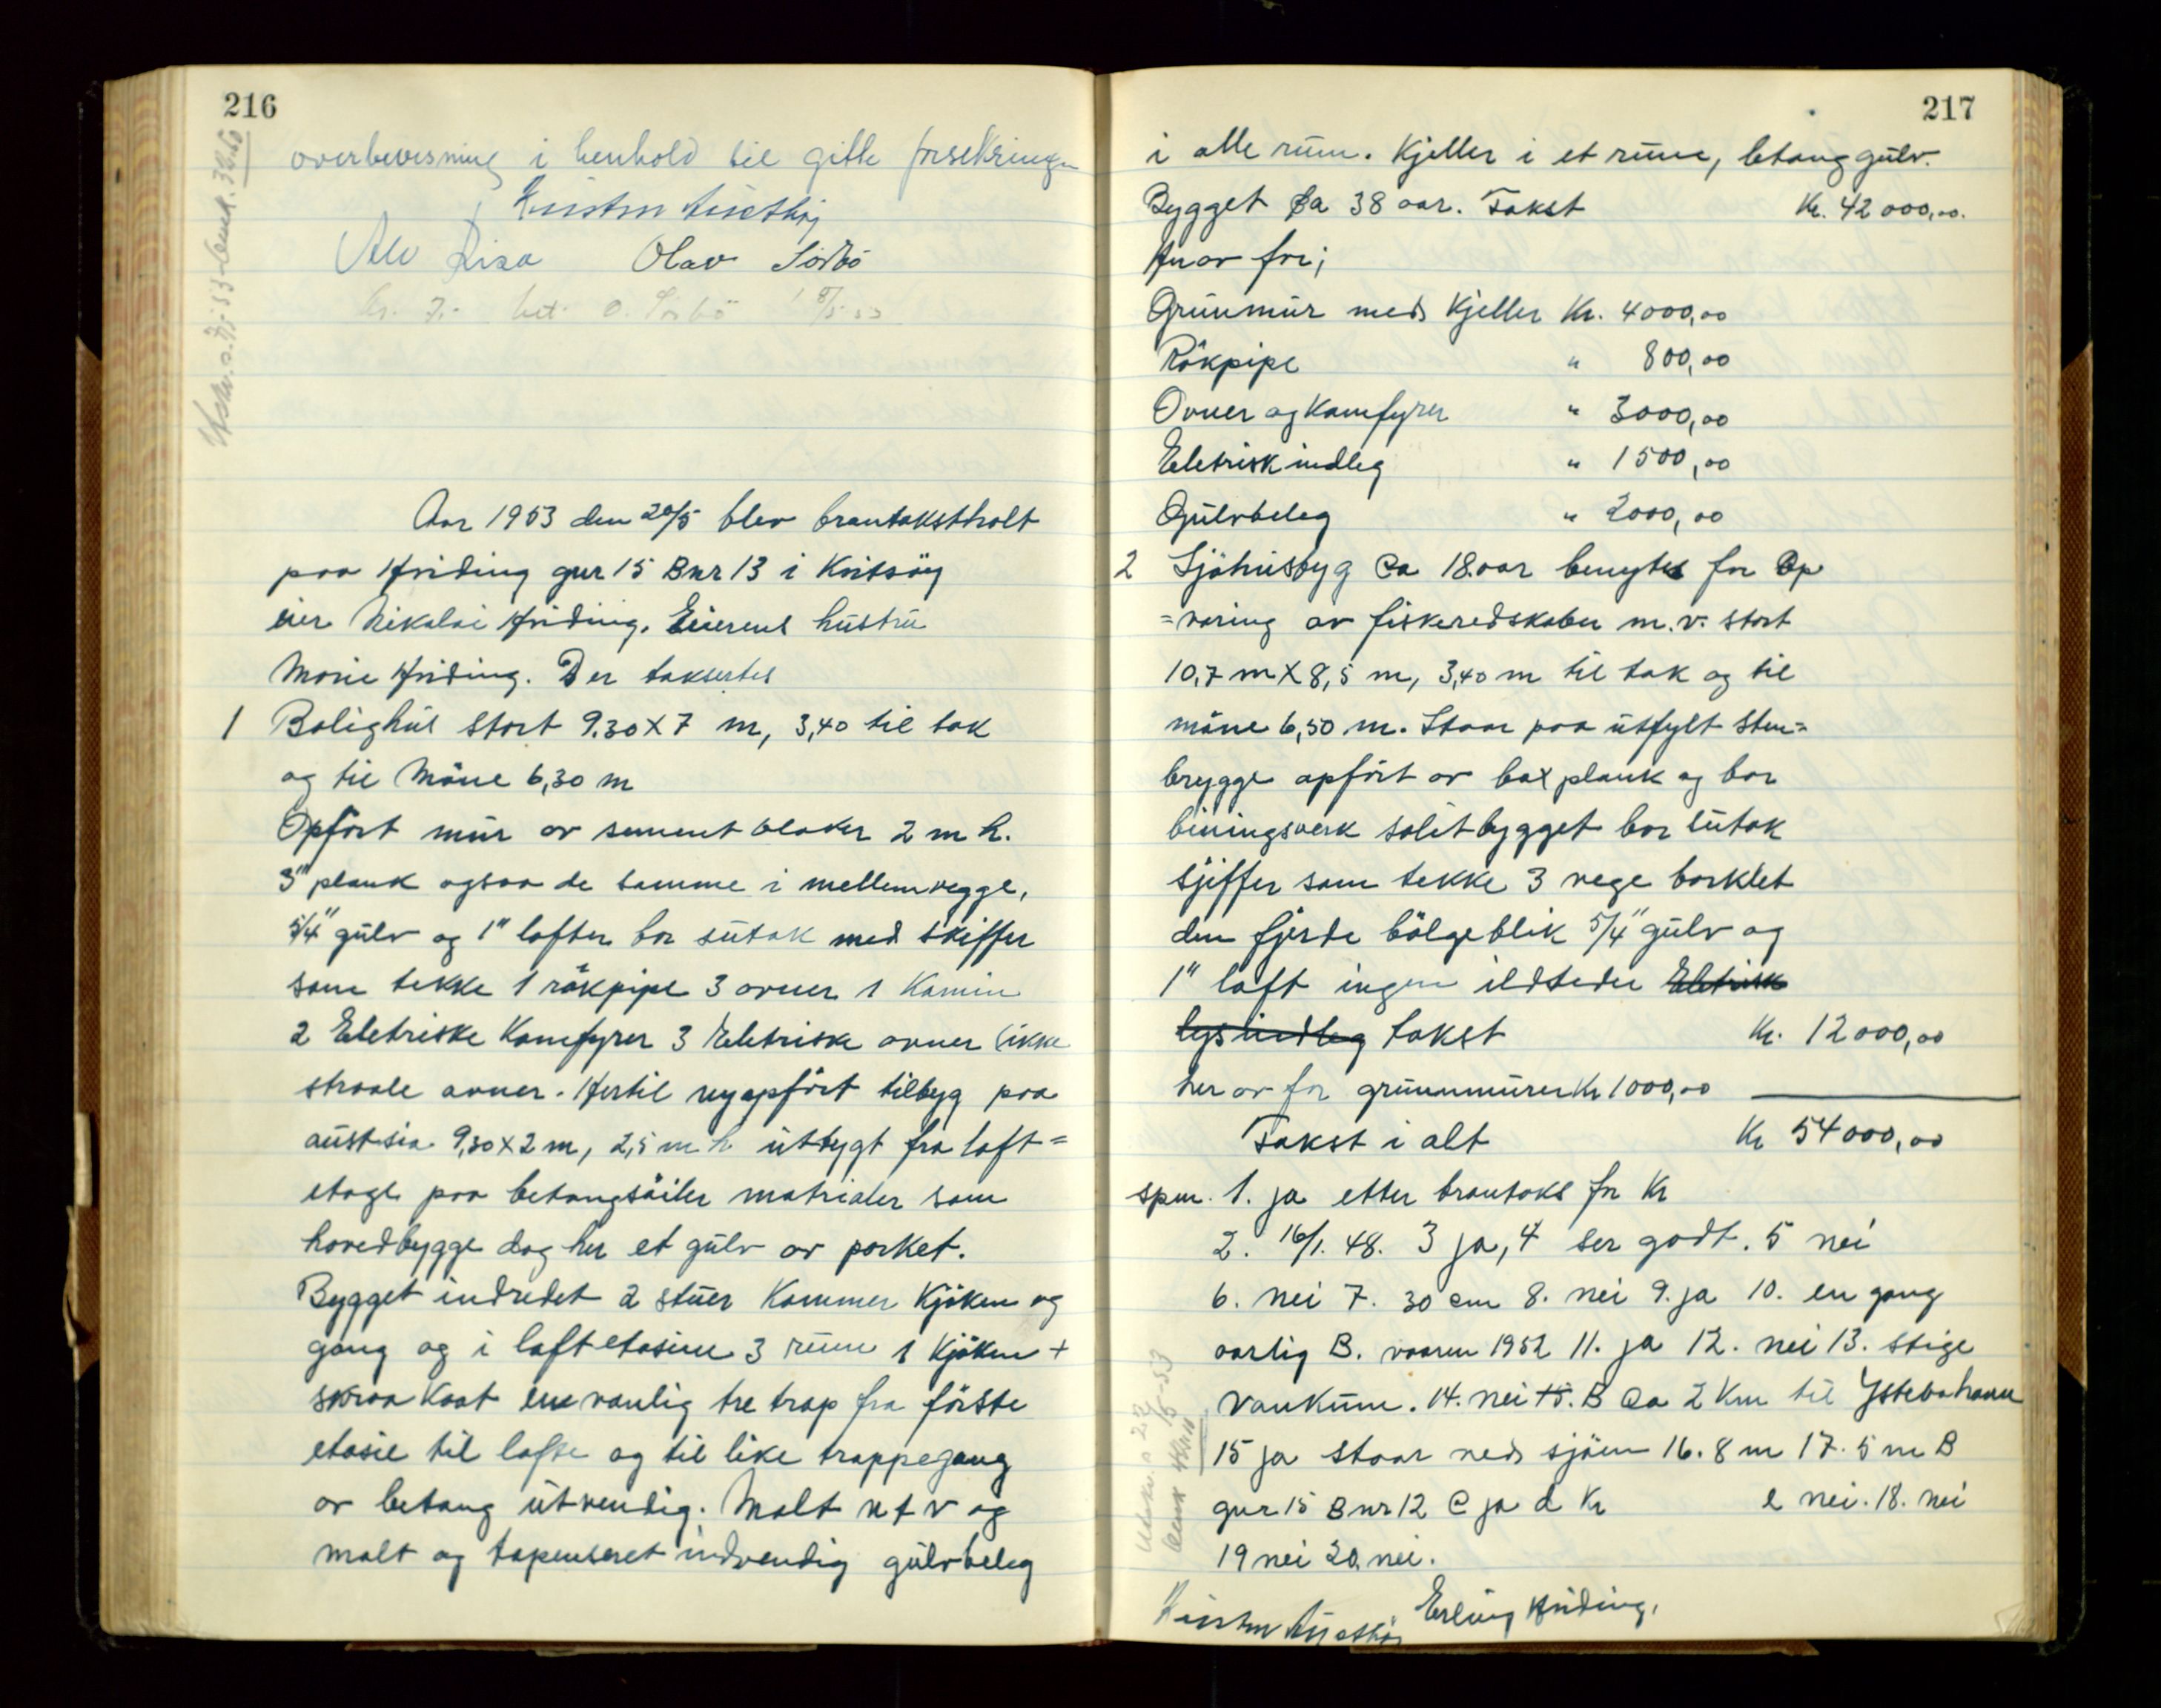 216
overbevisning i henhold til gitte forsekringer
Alv Risa Olav Sörbö
Kr. 7.- bet. O. Sörbö
Aar 1953 den 20/5 blev brantakst holt
paa Hviding gnr 15 Bnr 13 i Kvitsöy
eier Nikolai Hviding. Eierens hustru
Marie Hviding. Der taksertes
1 Bolighus stort 9.30 x 7 m, 3,40 til tak
og til Möne 6,30 m
Opfört mur av sement bloker 2 m h.
3" plank ogsaa de samme i mellemvegge,
5/4" gulv og 1" lofter bor sutak med skiffer
som tekke 1 rökpipe 3 ovner 1 Kamin
2 Eletriske Komfyrer 3 Eletriske ovner (ikke
straale ovner. Hertil nyopfört tilbyg paa
austsia 9,30 x 2 m, 2,5 m h utbygt fra loft=
etage paa betongsöiler matrialer som
hovedbygge dog her et gulv av parket.
Bygget indredet 2 stuer Kammer Kjöken og
gang og i loftetasien 3 rum 1 Kjöken +
skraa Kaat en vanlig tre trap fra förste
etasie til lofte og til like trappegang
av betong utvendig. Malt utv og
malt og tapenseret indvendig gulvbeleg
217
i alle rum. Kjeller i et rum, betong gulv.
Bygget Ca 38 aar. Takst Kr. 42 000,00.
Herav for;
Grunmur med Kjeller Kr. 4000,00
Rökpipe " 800,00
Ovner og Komfyrer " 3000,00
Eletrisk indleg " 1500,00
Gulvbeleg " 2000,00
2 Sjöhusbyg Ca 18 aar benyttes for Op
=varing av fiskeredskaber m.v. stort
10,7 m X 8,5 m, 3,40 m til tak og til
möne 6,50 m. Staar paa utfylt sten=
brygge opfört av plank og bor
bindingsverk solit bygget bor sutak
sjiffer som tekke 3 vege borklet
den fjerde bölgeblik 5/4" gulv og
1" loft ingen ildsteder Eletrisk
lys indleg takst Kr. 12000,00
her av for grunnmuren Kr 1000,00
Takst i alt Kr 54000,00
spm. 1. ja etter brantaks for Kr
2. 16/1. 48. 3 ja, 4 ser godt. 5 nei
6. nei 7. 30 cm 8. nei 9. ja 10. en gang
aarlig B. vaaren 1952 11. ja 12. nei 13. stige
vankum. 14. nei 15. B Ca 2 Km til Ystebøhavn
15 ja staar ved sjöen 16. 8 m 17. 5 m B
gnr 15 Bnr 12 C ja d Kr e nei. 18. nei
19 nei 20. nei.
Erling Hviding.